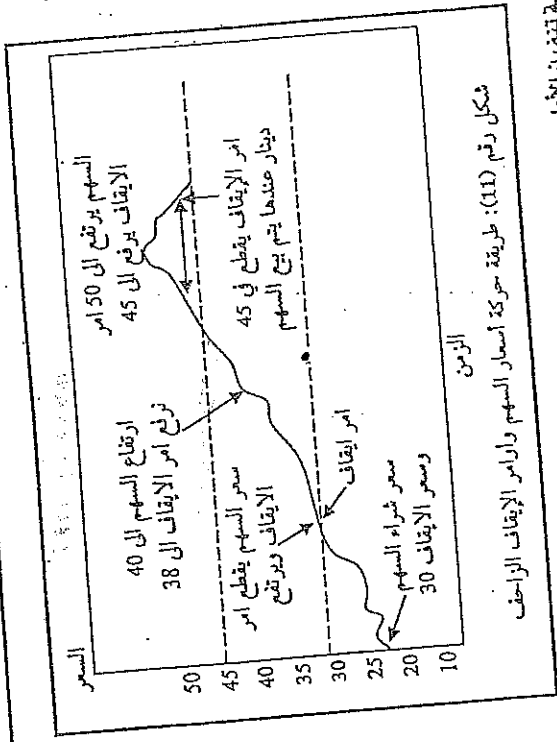 السعر
50
45
40
35
30
25
20
10
السهم يرتفع الى 50 امر
الايقاف يرفع الى 45
امر الإيقاف يقطع في 45
دينار عندها يتم بيع السهم
ارتفاع السهم الى 40
نرفع امر الايقاف الى 38
سعر السهم يقطع امر
الايقاف ويرتفع
امر ايقاف
سعر شراء السهم
وسعر الايقاف 30
الزمن
شكل رقم (11): طريقة حركة أسعار السهم وأوامر الإيقاف الزاحف